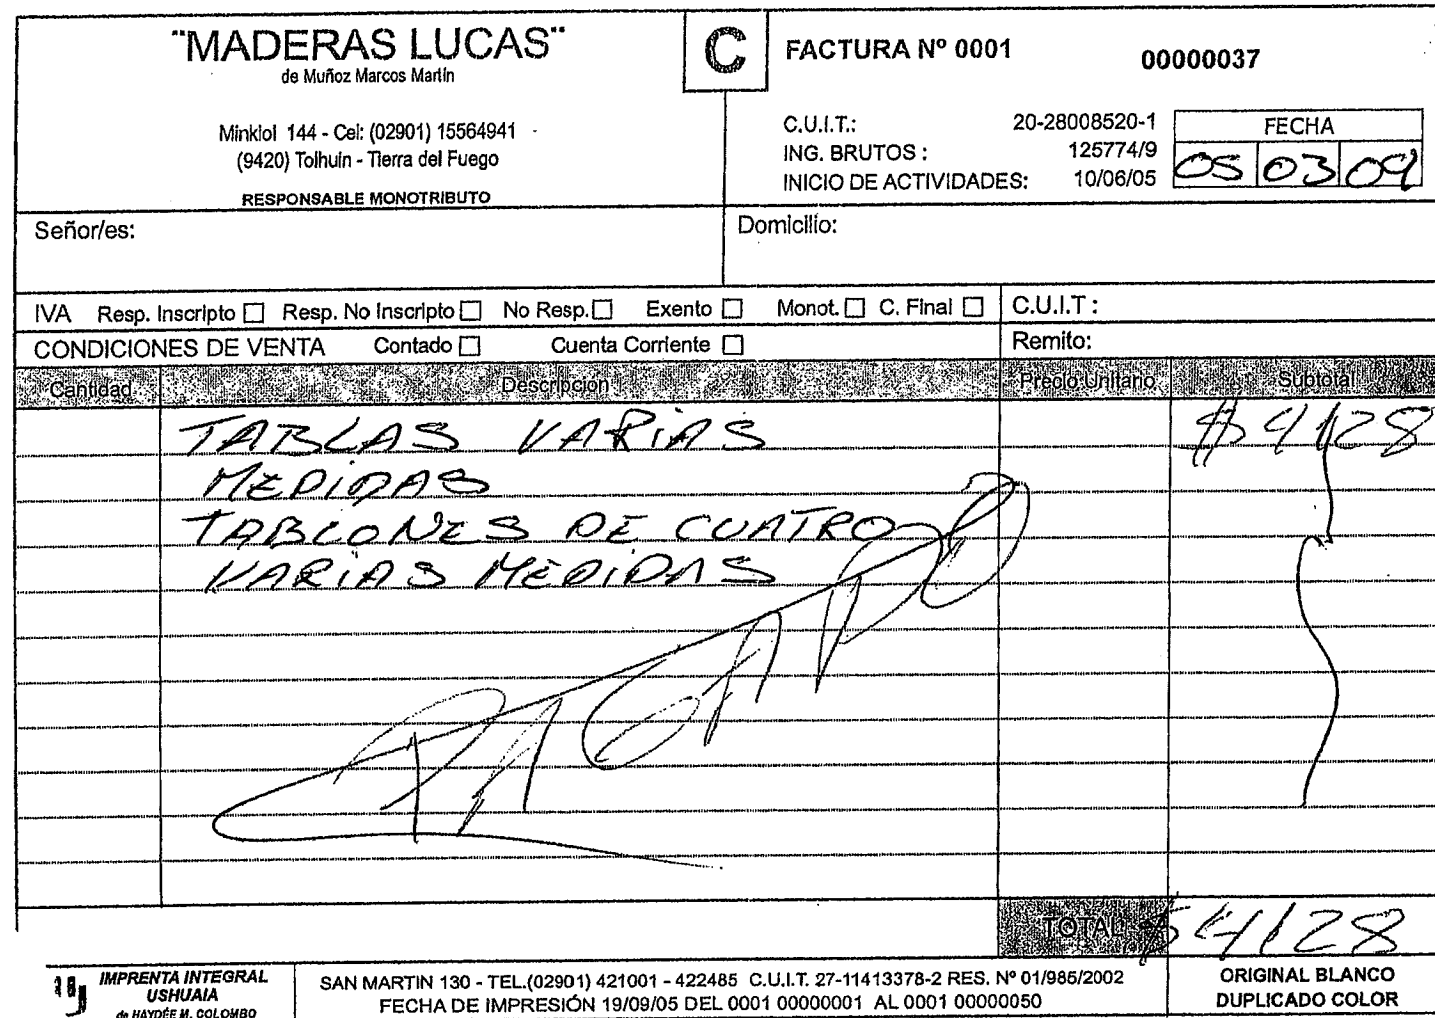 "MADERAS LUCAS"
de Muñoz Marcos Martín
Minkiol 144 - Cel: (02901) 15564941
(9420) Tolhuin - Tierra del Fuego
RESPONSABLE MONOTRIBUTO
C
FACTURA Nº 0001 00000037
C.U.I.T.: 20-28008520-1
ING. BRUTOS : 125774/9
INICIO DE ACTIVIDADES: 10/06/05
FECHA
05 03 09
Señor/es:
Domicilio:
IVA Resp. Inscripto Resp. No Inscripto No Resp. Exento Monot. C. Final C.U.I.T :
CONDICIONES DE VENTA Contado Cuenta Corriente Remito:
Cantidad Descripcion Precio Unitario Subtotal
TABLAS VARIAS $ 4128
MEDIDAS
TABLONES DE CUATRO
VARIAS MEDIDAS
PAGADO
TOTAL $ 4128
IMPRENTA INTEGRAL
USHUAIA
de HAYDÉE M. COLOMBO
SAN MARTIN 130 - TEL.(02901) 421001 - 422485 C.U.I.T. 27-11413378-2 RES. Nº 01/985/2002
FECHA DE IMPRESIÓN 19/09/05 DEL 0001 00000001 AL 0001 00000050
ORIGINAL BLANCO
DUPLICADO COLOR